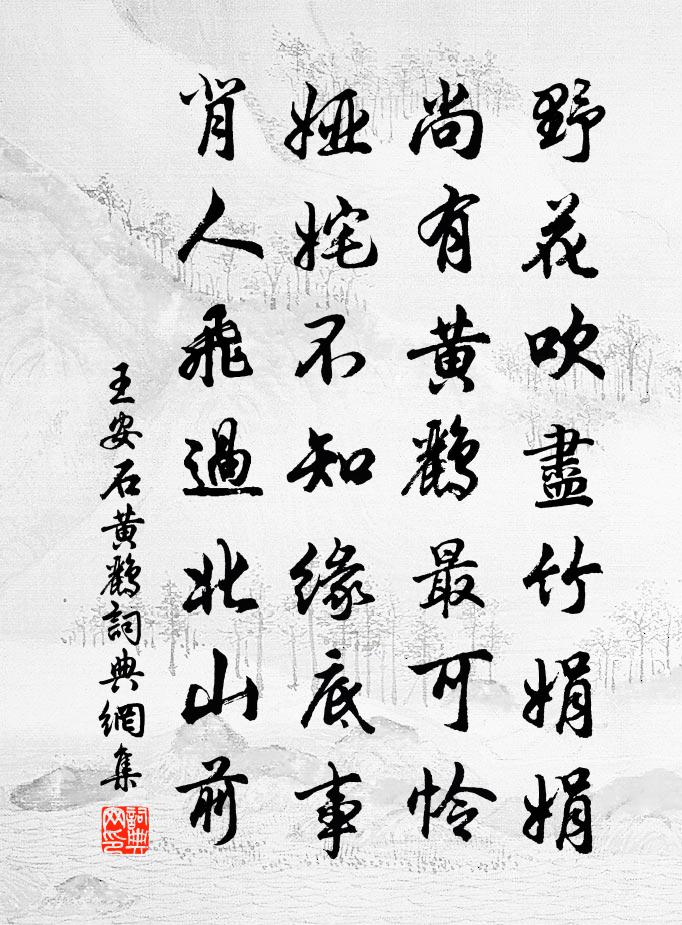 野花吹盡竹娟娟
尚有黃鸝最可怜
婭姹不知緣底事
背人飛過北山前
王安石黃鸝詞典網集
詞典网印